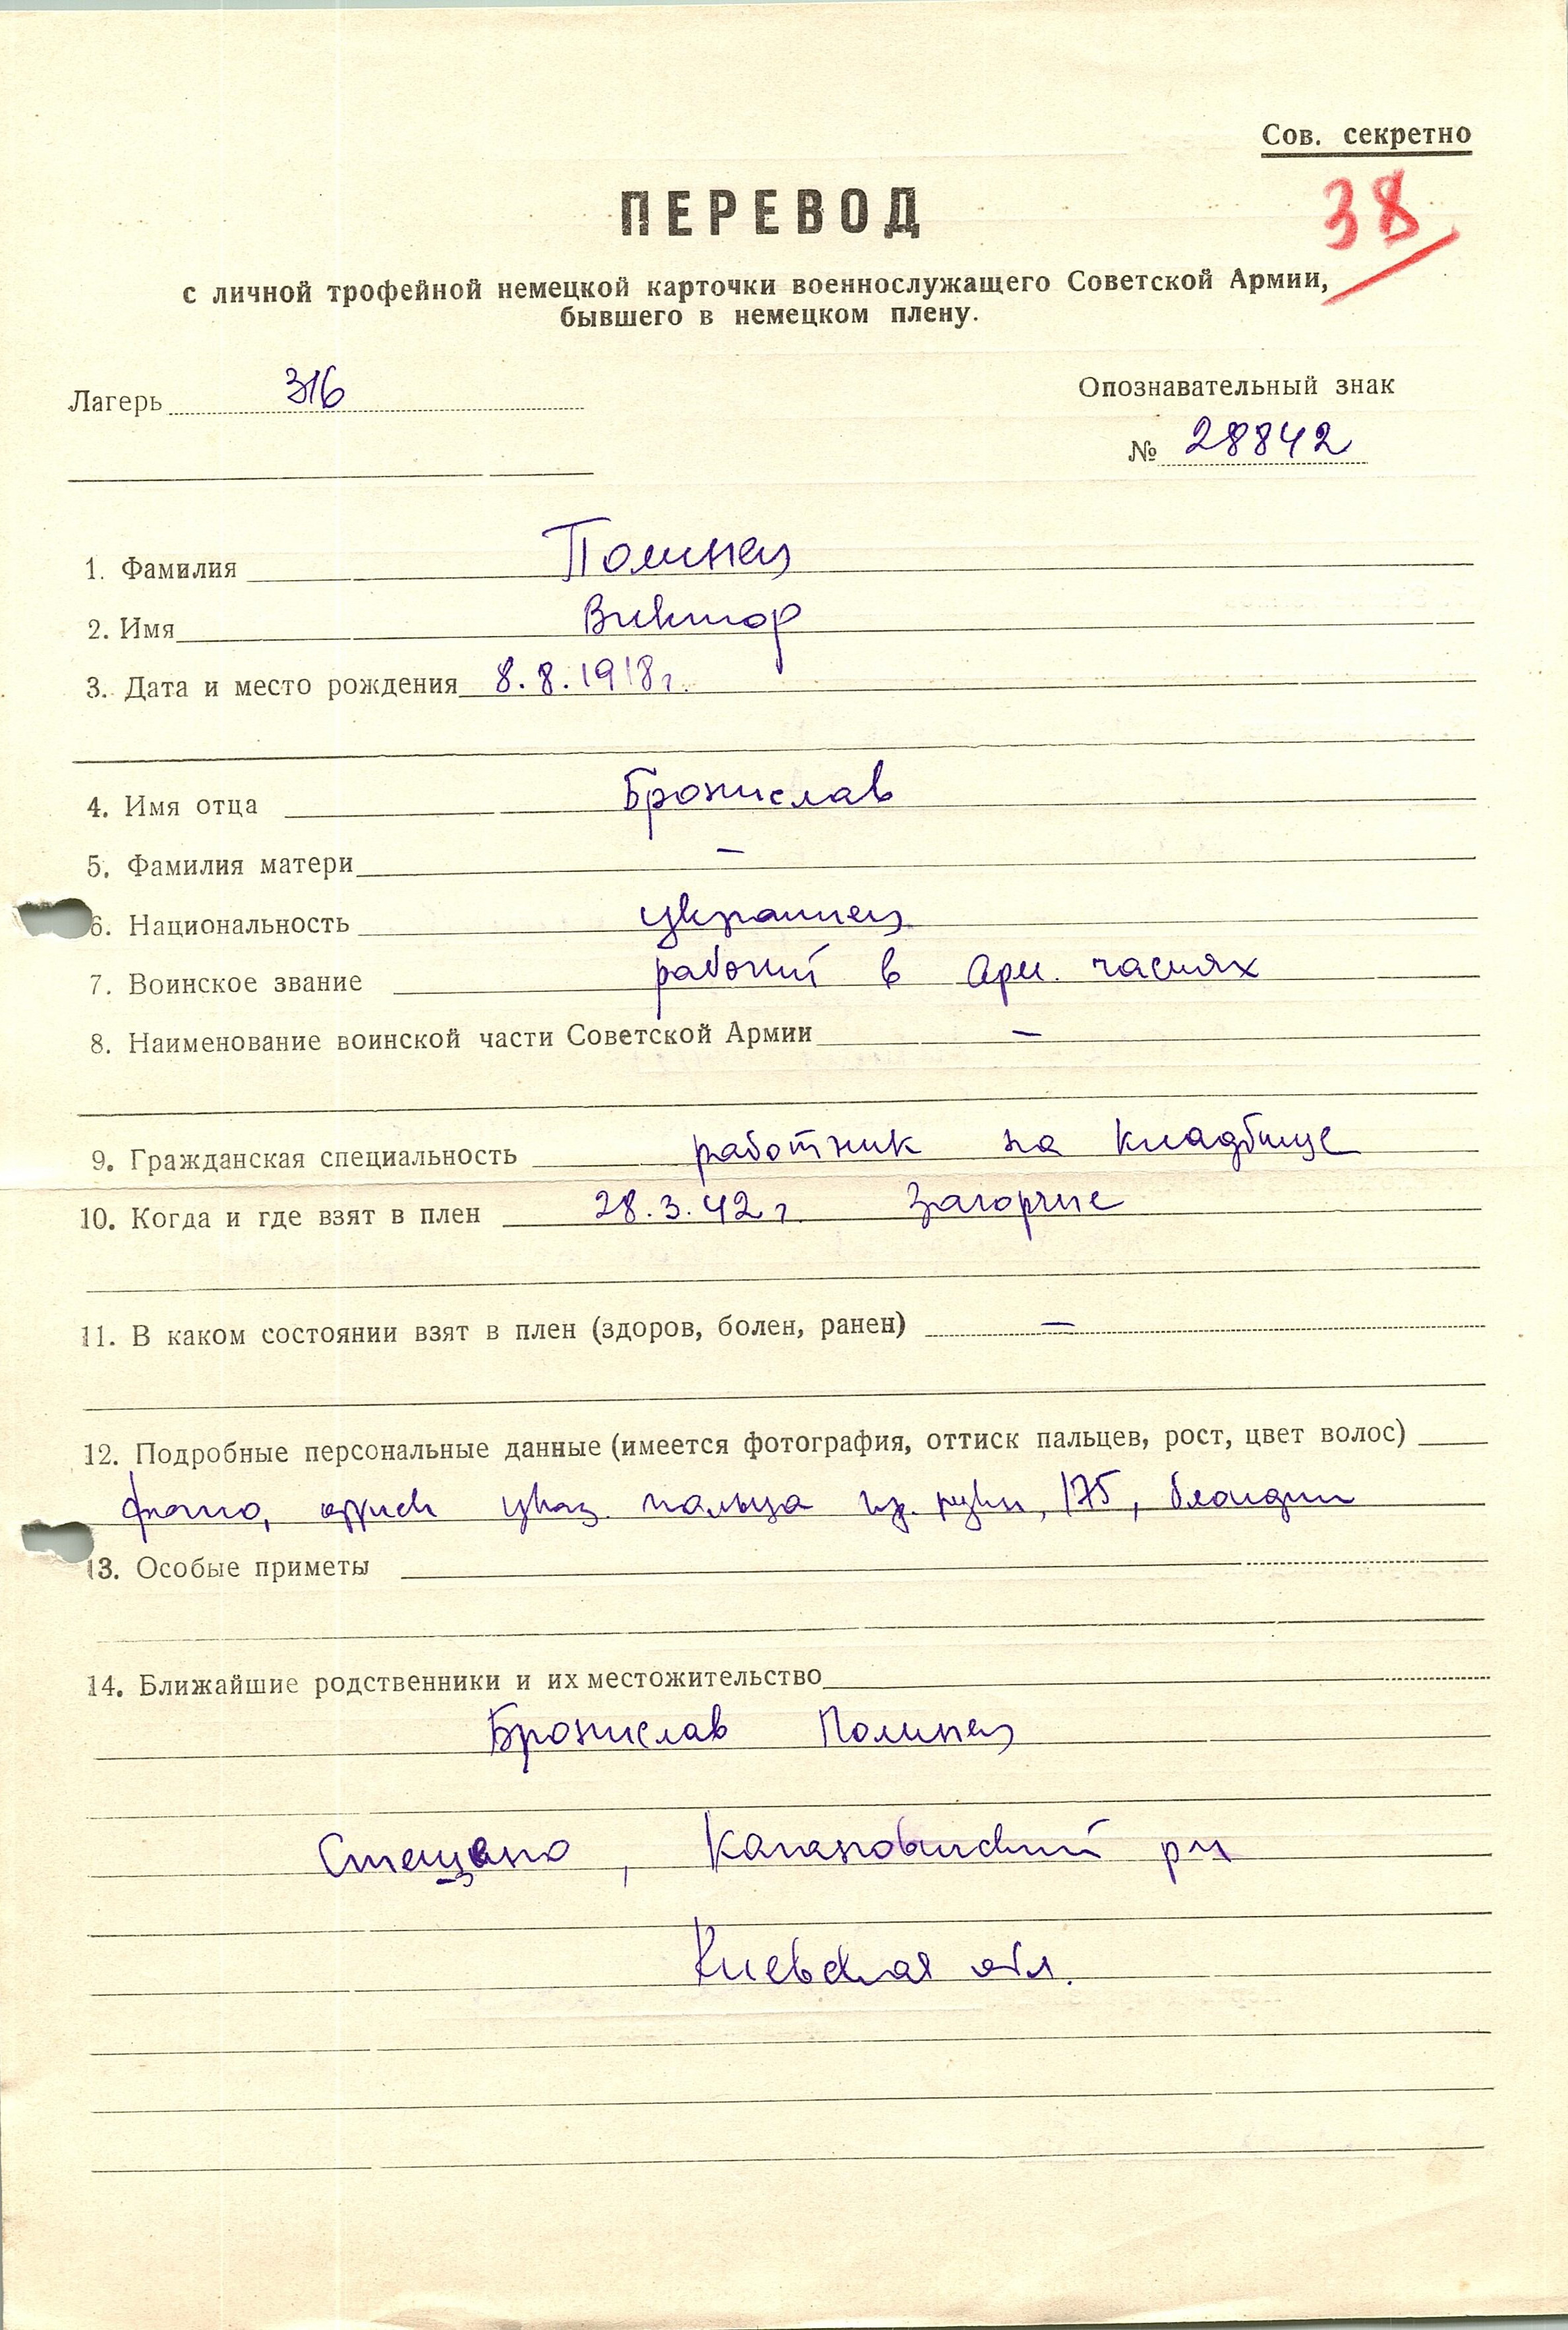 Сов. секретно
38
ПЕРЕВОД
с личной трофейной немецкой карточки военнослужащего Советской Армии,
бывшего в немецком плену.
Лагерь 316
Опознавательный знак
№ 28842
1. Фамилия Полинец
2. Имя Виктор
3. Дата и место рождения 8.8.1918 г.
4. Имя отца Бронислав
5. Фамилия матери –
6. Национальность украинец
7. Воинское звание рабочий в арм. частях
8. Наименование воинской части Советской Армии –
9. Гражданская специальность работник на кладбище
10. Когда и где взят в плен 28.3.42 г. Загорье
11. В каком состоянии взят в плен (здоров, болен, ранен) –
12. Подробные персональные данные (имеется фотография, оттиск пальцев, рост, цвет волос)
фото, указ. пальца пр. руки, 175, блондин
13. Особые приметы
14. Ближайшие родственники и их местожительство
Бронислав Полинец
Кагановичский рн
Киевская обл.